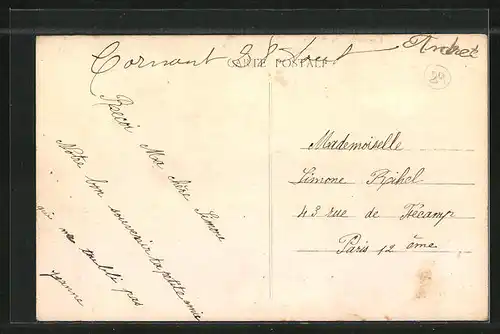 Cornant 22 Août André
CARTE POSTALE
20
Recoi Ma chère Simone
Notre bon souvenir ta petite amie
qui ne toubli pas
Mademoiselle
Simone Rihel
43 rue de Fécamp
Paris 12 ème